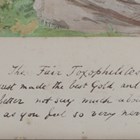 The Fair Toxophilites
made the best Gold and
better not say much about
as you feel so very